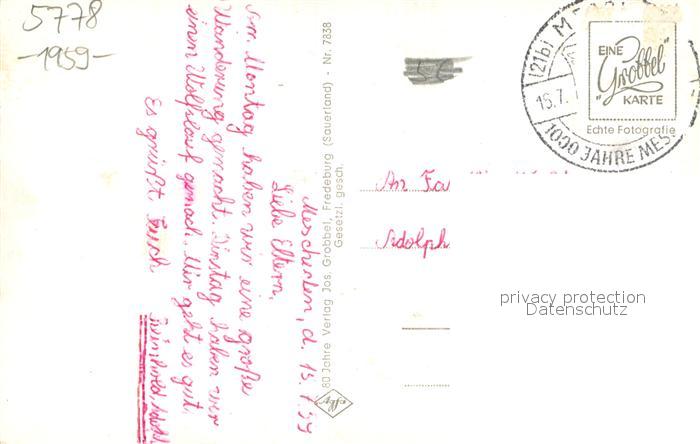 5778
-1959-
Mescherlen, d. 15.7.59
Liebe Eltern,
Am Montag haben wir eine große
Wanderung gemacht. Dinstag haben wir
einen Wolfslauf gemach. Mir geht es gut.
Es grüßt Euch
Reinhold
80 Jahre Verlag Jos. Grobbel, Fredeburg (Sauerland) - Nr. 7838
Gesetzl. gesch.
Agfa
(21b)
15.7.
1000 JAHRE MES
EINE
"Grobbel"
KARTE
Echte Fotografie
An Fa
Adolph
privacy protection
Datenschutz